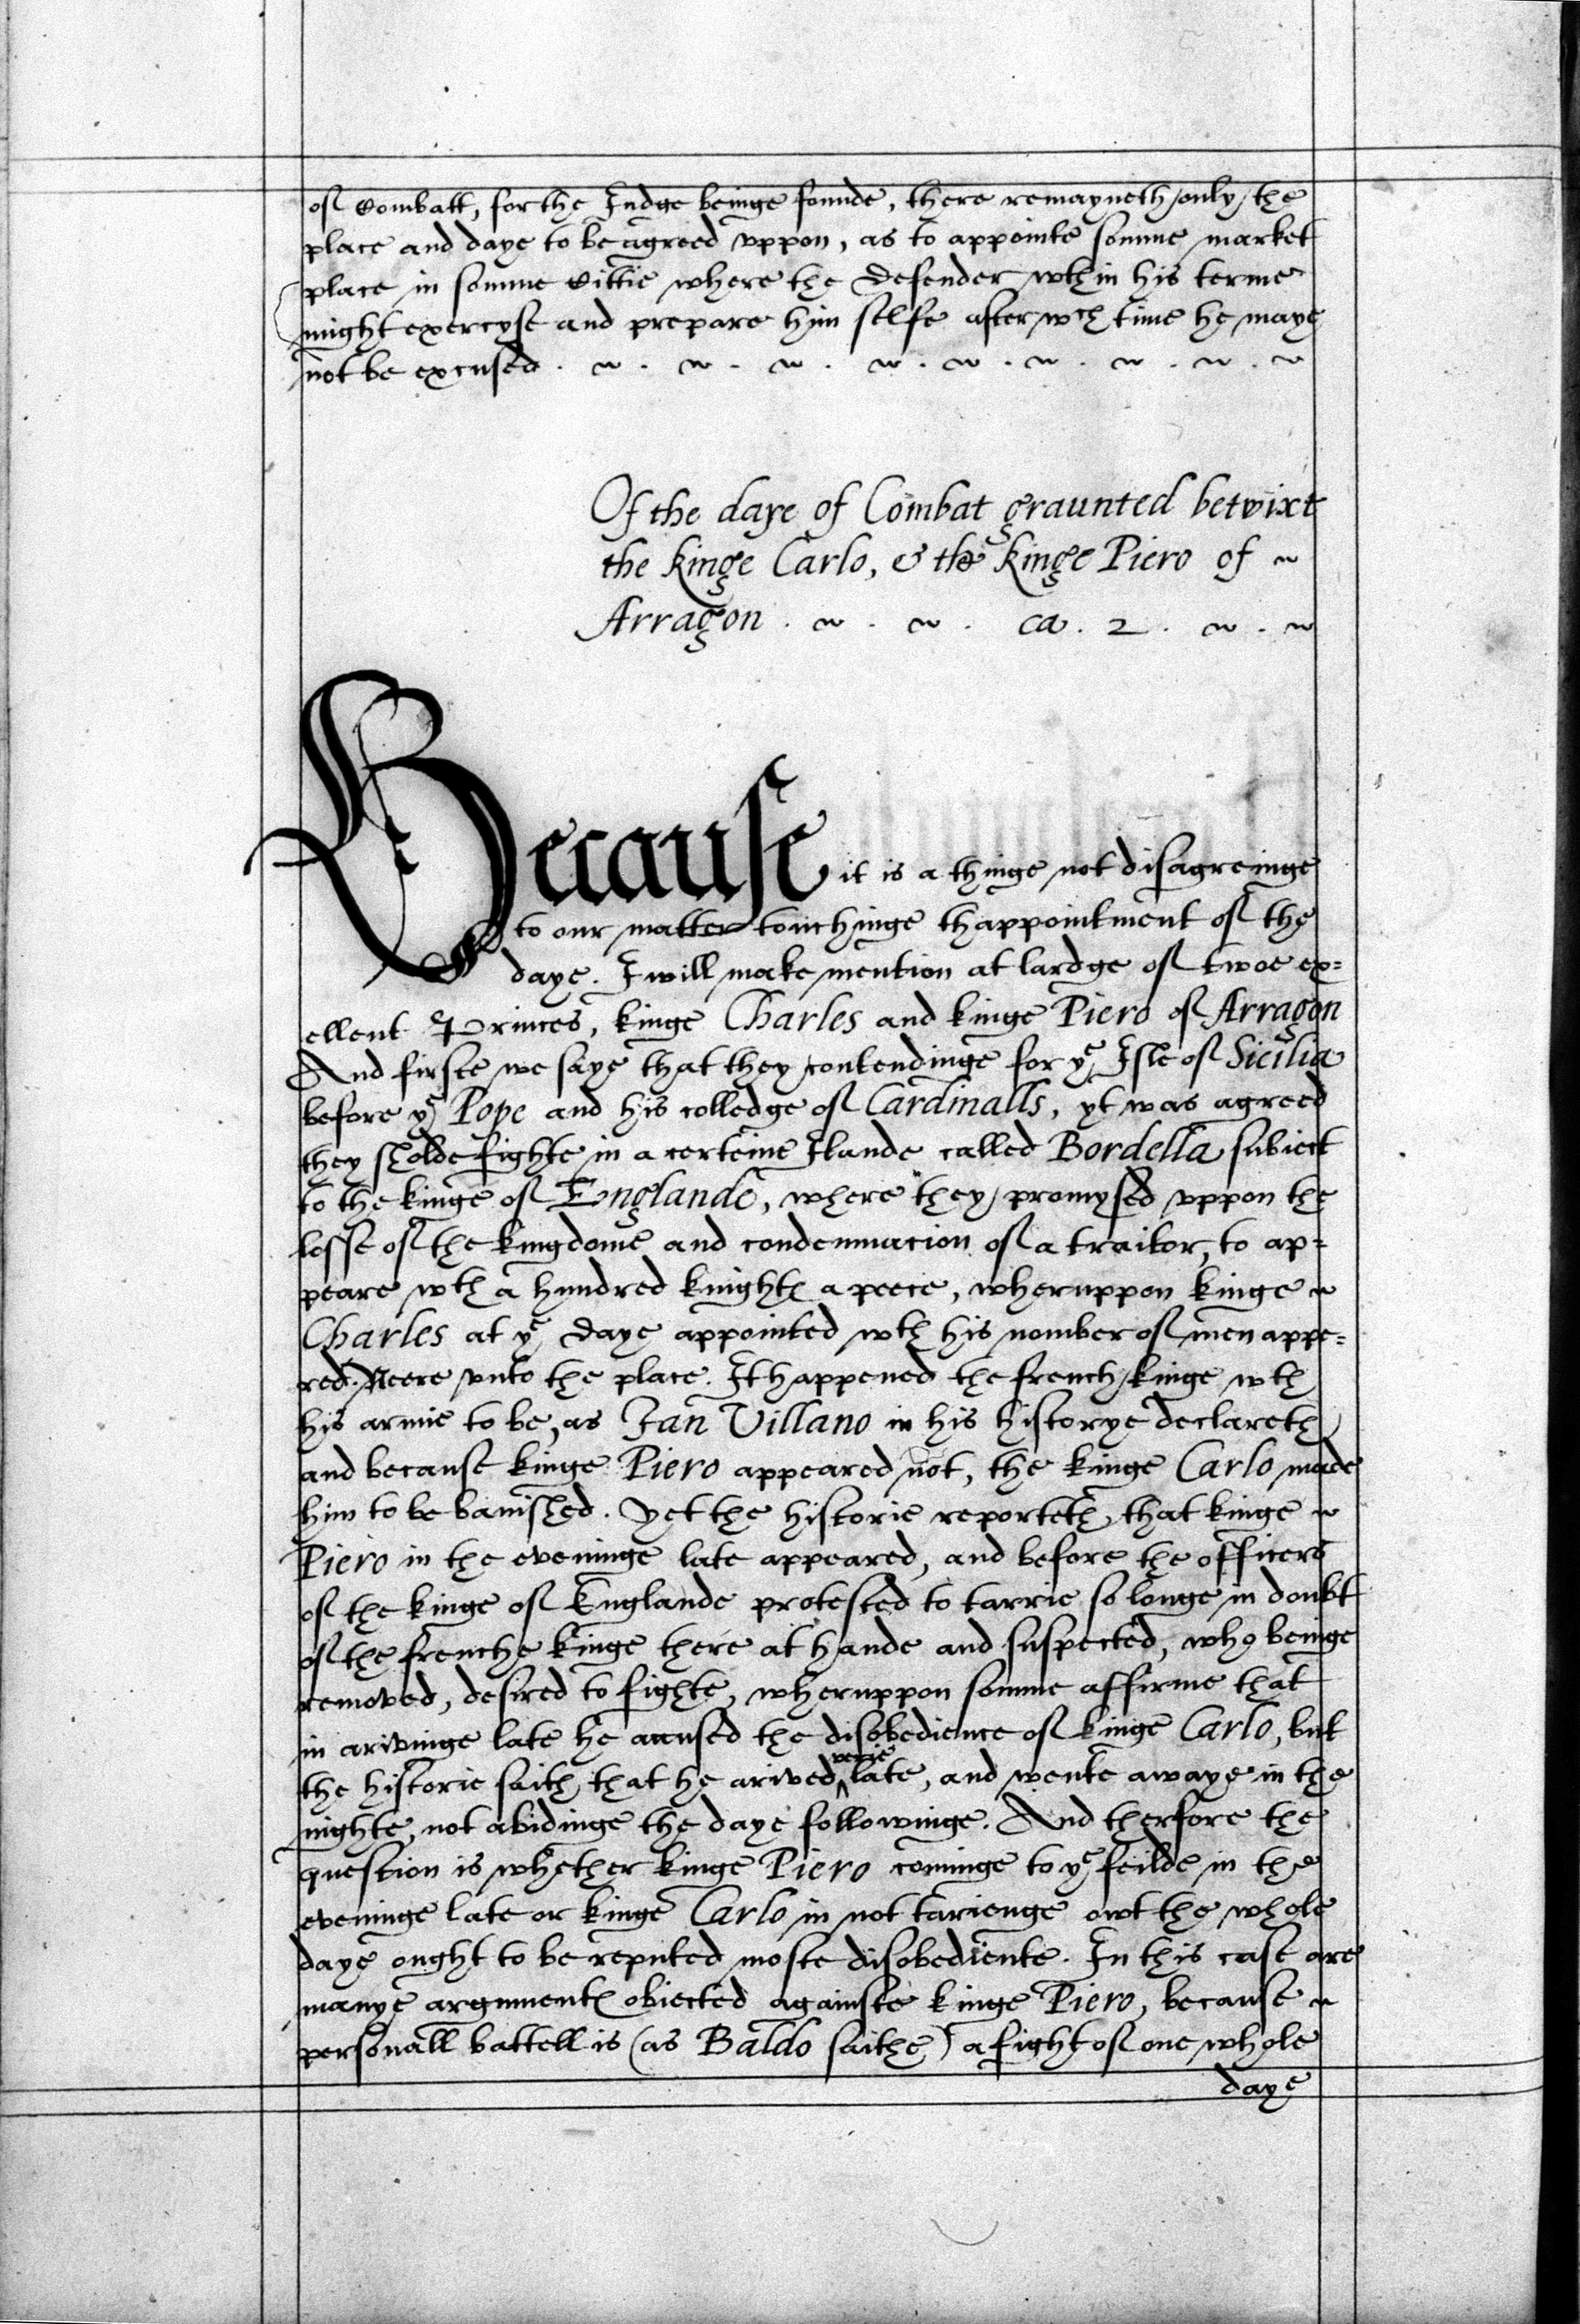 of Combatt, for the Iudge beinge founde, there remayneth only the
place and daye to be agreed vppon, as to appointe somme market
place in somme Cittie where the Defender wthin his terme
might exercyse and prepare him selfe after wch time he maye
not be excused.
Of the daye of Combat graunted betwixt
the kinge Carlo, & the kinge Piero of
Arragon . ca . 2 .
Because it is a thinge not disagreinge
to our matter touchinge thappointment of the
daye. I will make mention at lardge of twoe ex=
ellent Princes, kinge Charles and kinge Piero of Arragon
And firste we saye that they contendinge for ye Isle of Sicilia
before ye Pope and his colledge of Cardinalls, yt was agreed
they sholde fighte in a certeine Ilande called Bordella subiect
to the kinge of Englande, where they promysed vppon the
losse of the kingdome and condemnacion of a traitor, to ap=
peare wth a hundred knightes a peece, wheruppon kinge
Charles at ye daye appointed wth his nomber of men appe=
red. Neere vnto the place. It happened the french kinge wth
his armie to be, as Jan Villano in his historye declareth
and because kinge Piero appeared not, the kinge Carlo made
him to be banished. yet the historie reporteth that kinge
Piero in the eveninge late appeared, and before the officers
of the kinge of Englande protested to tarrie so longe in doubt
of the frenche kinge there at hande and suspected, who beinge
removed, desired to fighte, wheruppon somme affirme that
in arivinge late he accused the disobedience of kinge Carlo, but
the historie saith that he arived verie late, and wente awaye in the
nighte, not abidinge the daye followinge. And therfore the
question is whether kinge Piero cominge to ye feilde in the
eveninge late or kinge Carlo in not tarienge owt the whole
daye ought to be reputed moste disobediente. In this case are
manye argumentes obiected againste kinge Piero, because
personall battell is (as Baldo saithe) a fight of one whole
daye